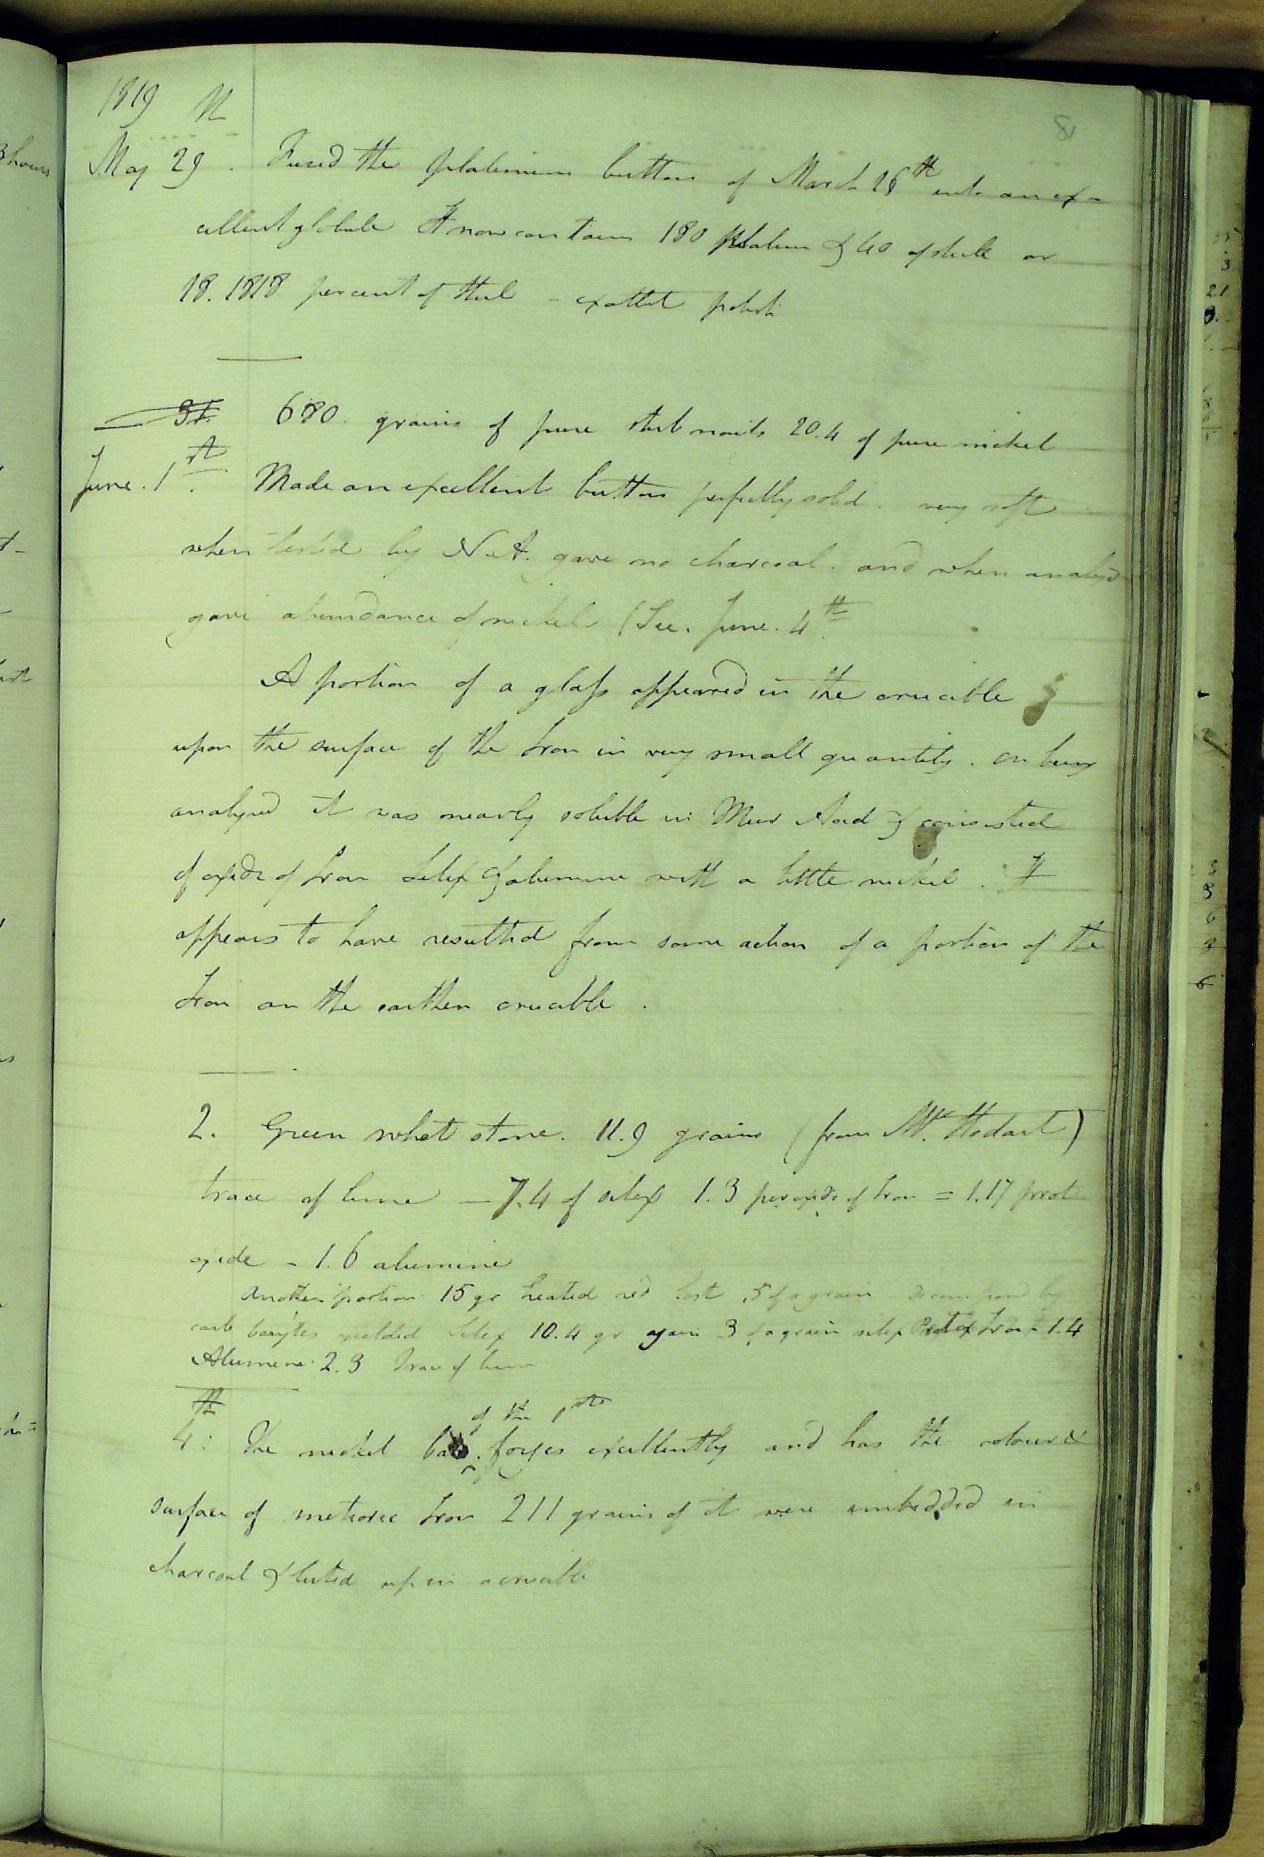 1819
8
May 29th. Fused the platinum button of March 26th into an ex=
cellent globule It now contains 180 platina & 40 of steel or
18.1818 percent of steel - excellt polish
680. grains of pure stub nails 20.4 of pure nickel
June. 1st. Made an excellent button perfectly solid. very soft
when tested by N.A. gave no charcoal. and when analysed
gave abundance of nickel (See. June. 4th.
A portion of a glass appeared in the crucible &
upon the surface of the Iron in very small quantity. on being
analysed it was nearly soluble in Mur Acid & consisted
of oxide of Iron Silex & alumine with a little nickel. It
appears to have resulted from some action of a portion of the
Iron on the earthen crucible.
2. Green whet stone. 11.9 grains (from Mr. Stodart)
trace of lime - 7.4 of silex 1.3 peroxide of Iron = 1.17 prot
oxide - 1.6 alumine
Another portion 15 gr heated red lost .5 of a grain decomposed by
carb barytes yielded Silex 10.4 gr again 3 of a grain silex Protox Iron 1.4
Alumine 2.3 Trace of lime
4th: The nickel of the 1st. forges excellently and has the colour &
surface of meteoric Iron 211 grains of it were imbedded in
charcoal & luted up in a crucible
3 hours